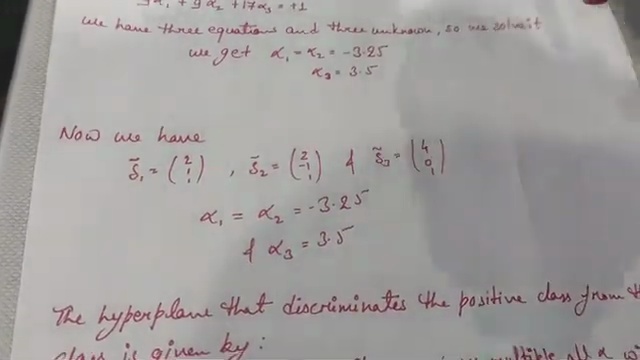 + 9α₂ + 17α₃ = +1
we have three equations and three unknown, so we solve it
we get α₁ = α₂ = -3.25
α₃ = 3.5
Now we have
S̃₁ = (2 1 1), S̃₂ = (2 -1 1) & S̃₃ = (4 0 1)
α₁ = α₂ = -3.25
& α₃ = 3.5
The hyperplane that discriminates the positive class from
class is given by:
all α